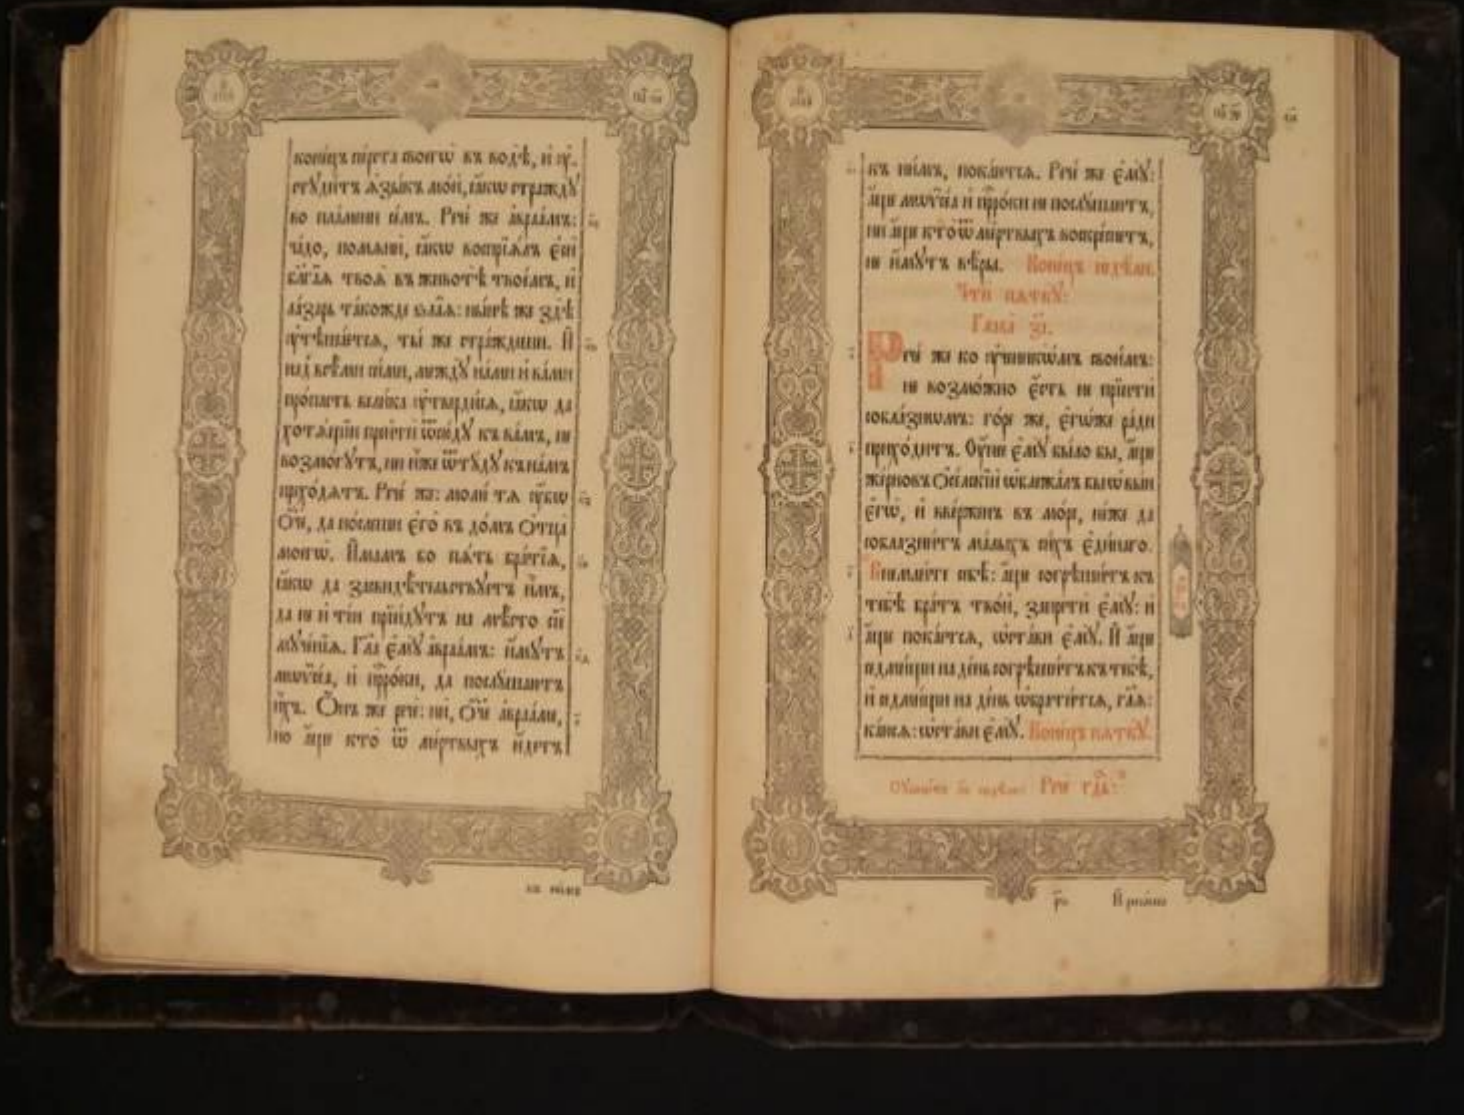 конє́цъ пє́рста своегѡ̀ въ водѣ̀, и҆ ᲂу҆-
студи́тъ ѧ҆зы́къ мо́й, ꙗ҆́кѡ стра́ждꙋ
во пла́мени се́мъ. Рече́ же а҆враа́мъ:
ча́до, помѧнѝ, ꙗ҆́кѡ воспрїѧ́лъ є҆сѝ
бл҃га̑ѧ твоѧ̑ въ животѣ̀ твое́мъ, и҆
ла́зарь та́кожде ѕла̑ѧ: ны́нѣ же здѣ̀
ᲂу҆тѣша́етсѧ, ты́ же стра́ждеши. И҆
над̾ всѣ́ми си́ми, междꙋ̀ на́ми и҆ ва́ми
про́пасть вели́ка ᲂу҆тверди́сѧ, ꙗ҆́кѡ да
хотѧ́щїи прейтѝ ѿсю́дꙋ къ ва́мъ, не
возмо́гꙋтъ, ни и҆̀же ѿтꙋ́дꙋ къ на́мъ
прехо́дѧтъ. Рече́ же: молю́ тѧ ᲂу҆̀бѡ
Ѻ҆́ч҃е, да по́слеши є҆го̀ въ до́мъ Ѻ҆тца̀
моегѡ̀. И҆́мамъ бо пѧ́ть бра́тїѧ,
ꙗ҆́кѡ да засвидѣ́тельствꙋетъ и҆̀мъ,
да не и҆ ті́и прїи́дꙋтъ на мѣ́сто сїѐ
мꙋче́нїѧ. Гл҃а є҆мꙋ̀ а҆враа́мъ: и҆́мꙋтъ
мѡѷсе́а, и҆ прⷪ҇ро́ки, да послꙋ́шаютъ
и҆́хъ. Ѻ҆́нъ же речѐ: нѝ, Ѻ҆́ч҃е а҆враа́ме,
но а҆́ще кто̀ ѿ ме́ртвыхъ и҆́детъ
къ ни̑мъ, пока́ютсѧ. Рече́ же є҆мꙋ̀:
а҆́ще мѡѷсе́а и҆ прⷪ҇ро́ки не послꙋ́шаютъ,
ни а҆́ще кто̀ ѿ ме́ртвыхъ воскре́снетъ,
не и҆́мꙋтъ вѣ́ры. Коне́цъ недѣ́ли.
Чтѝ пѧткꙋ̀:
Глава̀ з҃і.
Рече́ же ко ᲂу҆ченикѡ́мъ свои̑мъ:
не возмо́жно є҆́сть не прїитѝ
собла́знѡмъ: го́ре же, є҆гѡ́же ра́ди
прихо́дитъ. Оу҆́не є҆мꙋ̀ бы́ло бы, а҆́ще
же́рновъ Ѻ҆се́лскїй ѡ҆блежа́лъ бы ѡ҆ вы́и
є҆гѡ̀, и҆ вве́рженъ въ мо́ре, не́же да
соблазни́тъ ма́лыхъ си́хъ є҆ди́наго.
Внемли́те себѣ̀: а҆́ще согрѣши́тъ къ
тебѣ̀ бра́тъ тво́й, запретѝ є҆мꙋ̀: и҆
а҆́ще пока́етсѧ, ѡ҆ста́ви є҆мꙋ̀. И҆ а҆́ще
седми́щи на де́нь согрѣши́тъ къ тебѣ̀,
и҆ седми́щи на де́нь ѡ҆брати́тсѧ, гл҃ѧ:
ка́юсѧ: ѡ҆ста́ви є҆мꙋ̀. Коне́цъ пѧткꙋ̀.
Рече́ гдⷭ҇ь: